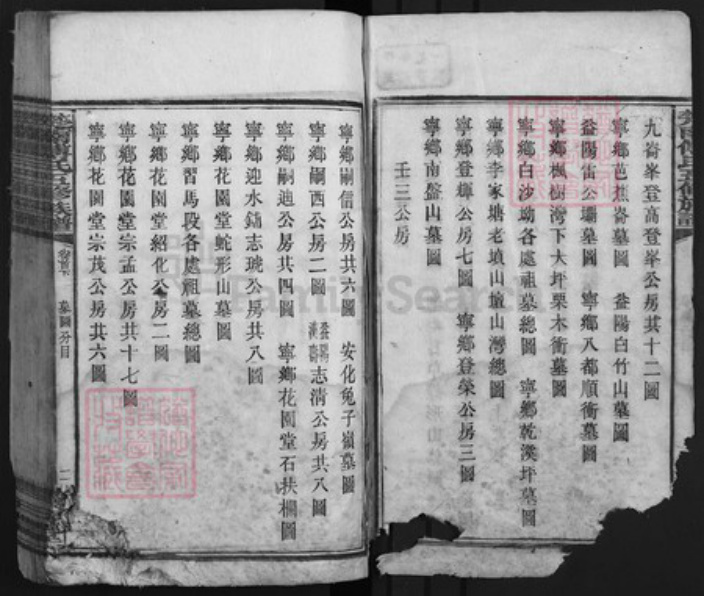 九嵛峯登高登峯公房共十二圖
寧鄉芭蕉嵛墓圖 益陽白竹山墓圖
益陽雷公壩墓圖 寧鄉八都順衝墓圖
寧鄉楓樹灣下大坪栗木衝墓圖
寧鄉白沙坳各處祖墓總圖 寧鄉乾溪坪墓圖
寧鄉李家塘老墳山墟山灣總圖
寧鄉登輝公房七圖 寧鄉登榮公房三圖
寧鄉南盤山墓圖
壬三公房
寧鄉嗣信公房共六圖 安化兔子嶺墓圖
寧鄉嗣西公房二圖 益陽漢壽志清公房共八圖
寧鄉嗣迪公房共四圖 寧鄉花園堂石扶欄圖
寧鄉迎水鋪志琥公房共八圖
寧鄉花園堂蛇形山墓圖
寧鄉習馬段各處祖墓總圖
寧鄉花園堂紹化公房二圖
寧鄉花園堂宗孟公房共十七圖
寧鄉花園堂宗茂公房共六圖
墓圖分目
二
FamilySearch